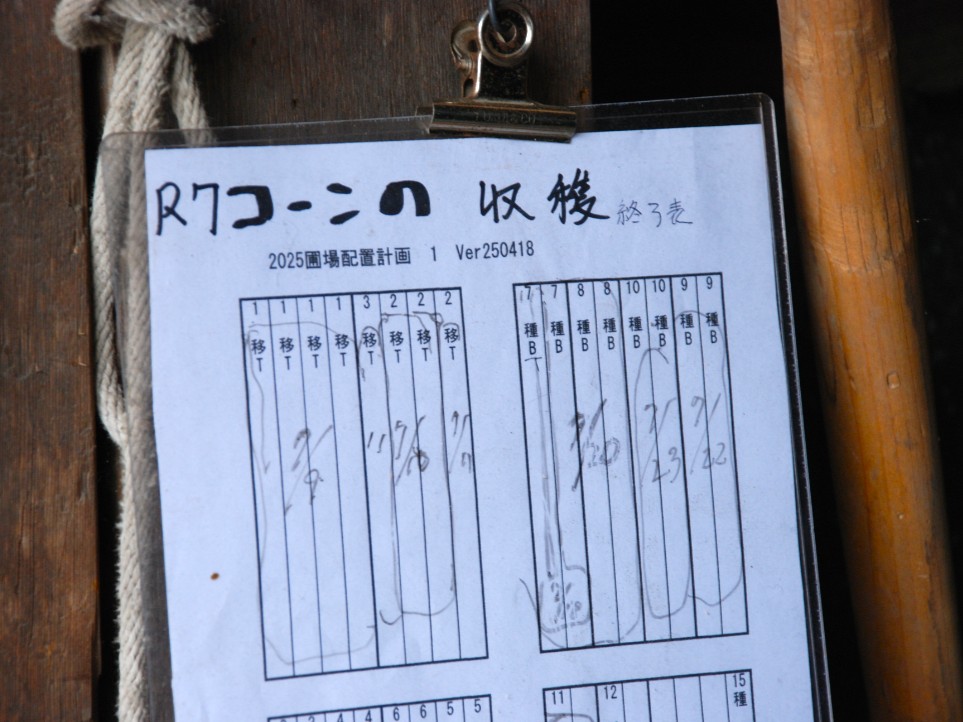 R7コーンの 収穫終了表
2025圃場配置計画 1 Ver250418
1 1 1 1 3 2 2 2
移T 移T 移T 移T 移T 移T 移T 移T
7/9
7 7 8 8 10 10 9 9
種B 種B 種B 種B 種B 種B 種B 種B
7/20 7/23 7/22
3 3 4 4 6 6 5 5
11 12 15
種